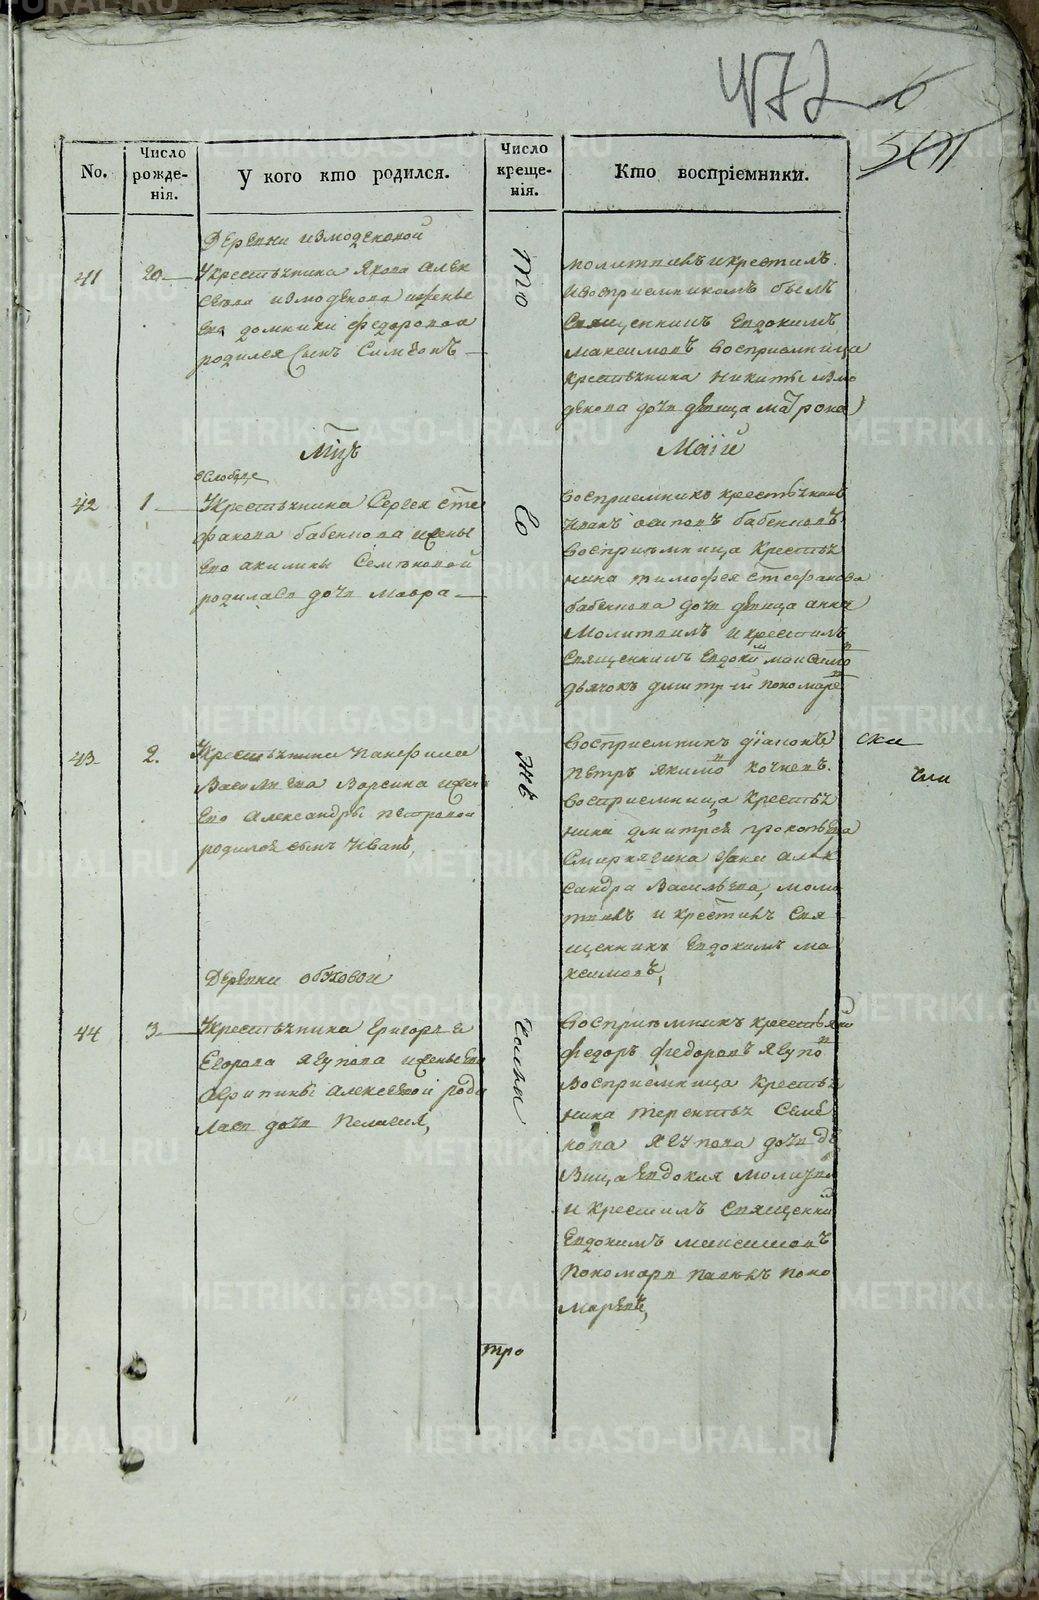 472
6
501
No.
Число рожде-нія.
У кого кто родился.
Число креще-нія.
Кто воспріемники.
деревни измоденовой
41
20
Укрестьянина Якова Алек
сеева измоденова ижены
его домники федоровои
родился сынъ Симеонъ
то
молитвилъ икрестилъ
ивосприемникомъ былъ
Священникъ Евдокимъ
максимовъ восприемница
крестьянина никиты измо
денова дочь девица матрона
Мцъ
Маій
вслободе
42
1
Укрестьянина Сергея Сте
фанова бабенкова ижены
его акилины Семеновой
родилась дочь мавра
Со
восприемникъ крестьянинъ
Иванъ осиповъ бабенковъ
восприемница крестья
нина тимофея стефанова
бабенкова дочь девица анна
молитвилъ икрестилъ
Священникъ Евдокимъ максимо
дьячокъ дмитрей пономаре
43
2.
Укрестьянина Панфила
Василиева Варсина ижены
его Александры петровои
родился сынъ Иванъ,
же
восприемникъ діаконъ
петръ якимо кочневъ.
восприемница крестья
нина дмитрея прокопьева
жена алек
сандра Васильева, моли
твилъ и крестилъ Свя
щенникъ Евдокимъ ма
ксимовъ,
ска
чли
деревни обуховой
44
3
Укрестьянина Григорья
Егорова Ягупова ижены его
Агрипины Алексеевой роди
лась дочь Пелагия,
восприемникъ крестьяни
федоръ федоровъ Ягупо
восприемница крестья
нина терентья Семе
нова Ягупова дочь де
вица Евдокия молитвилъ
и крестилъ Священни
Евдокимъ максимовъ
пономарь павелъ поно
маревъ,
тро